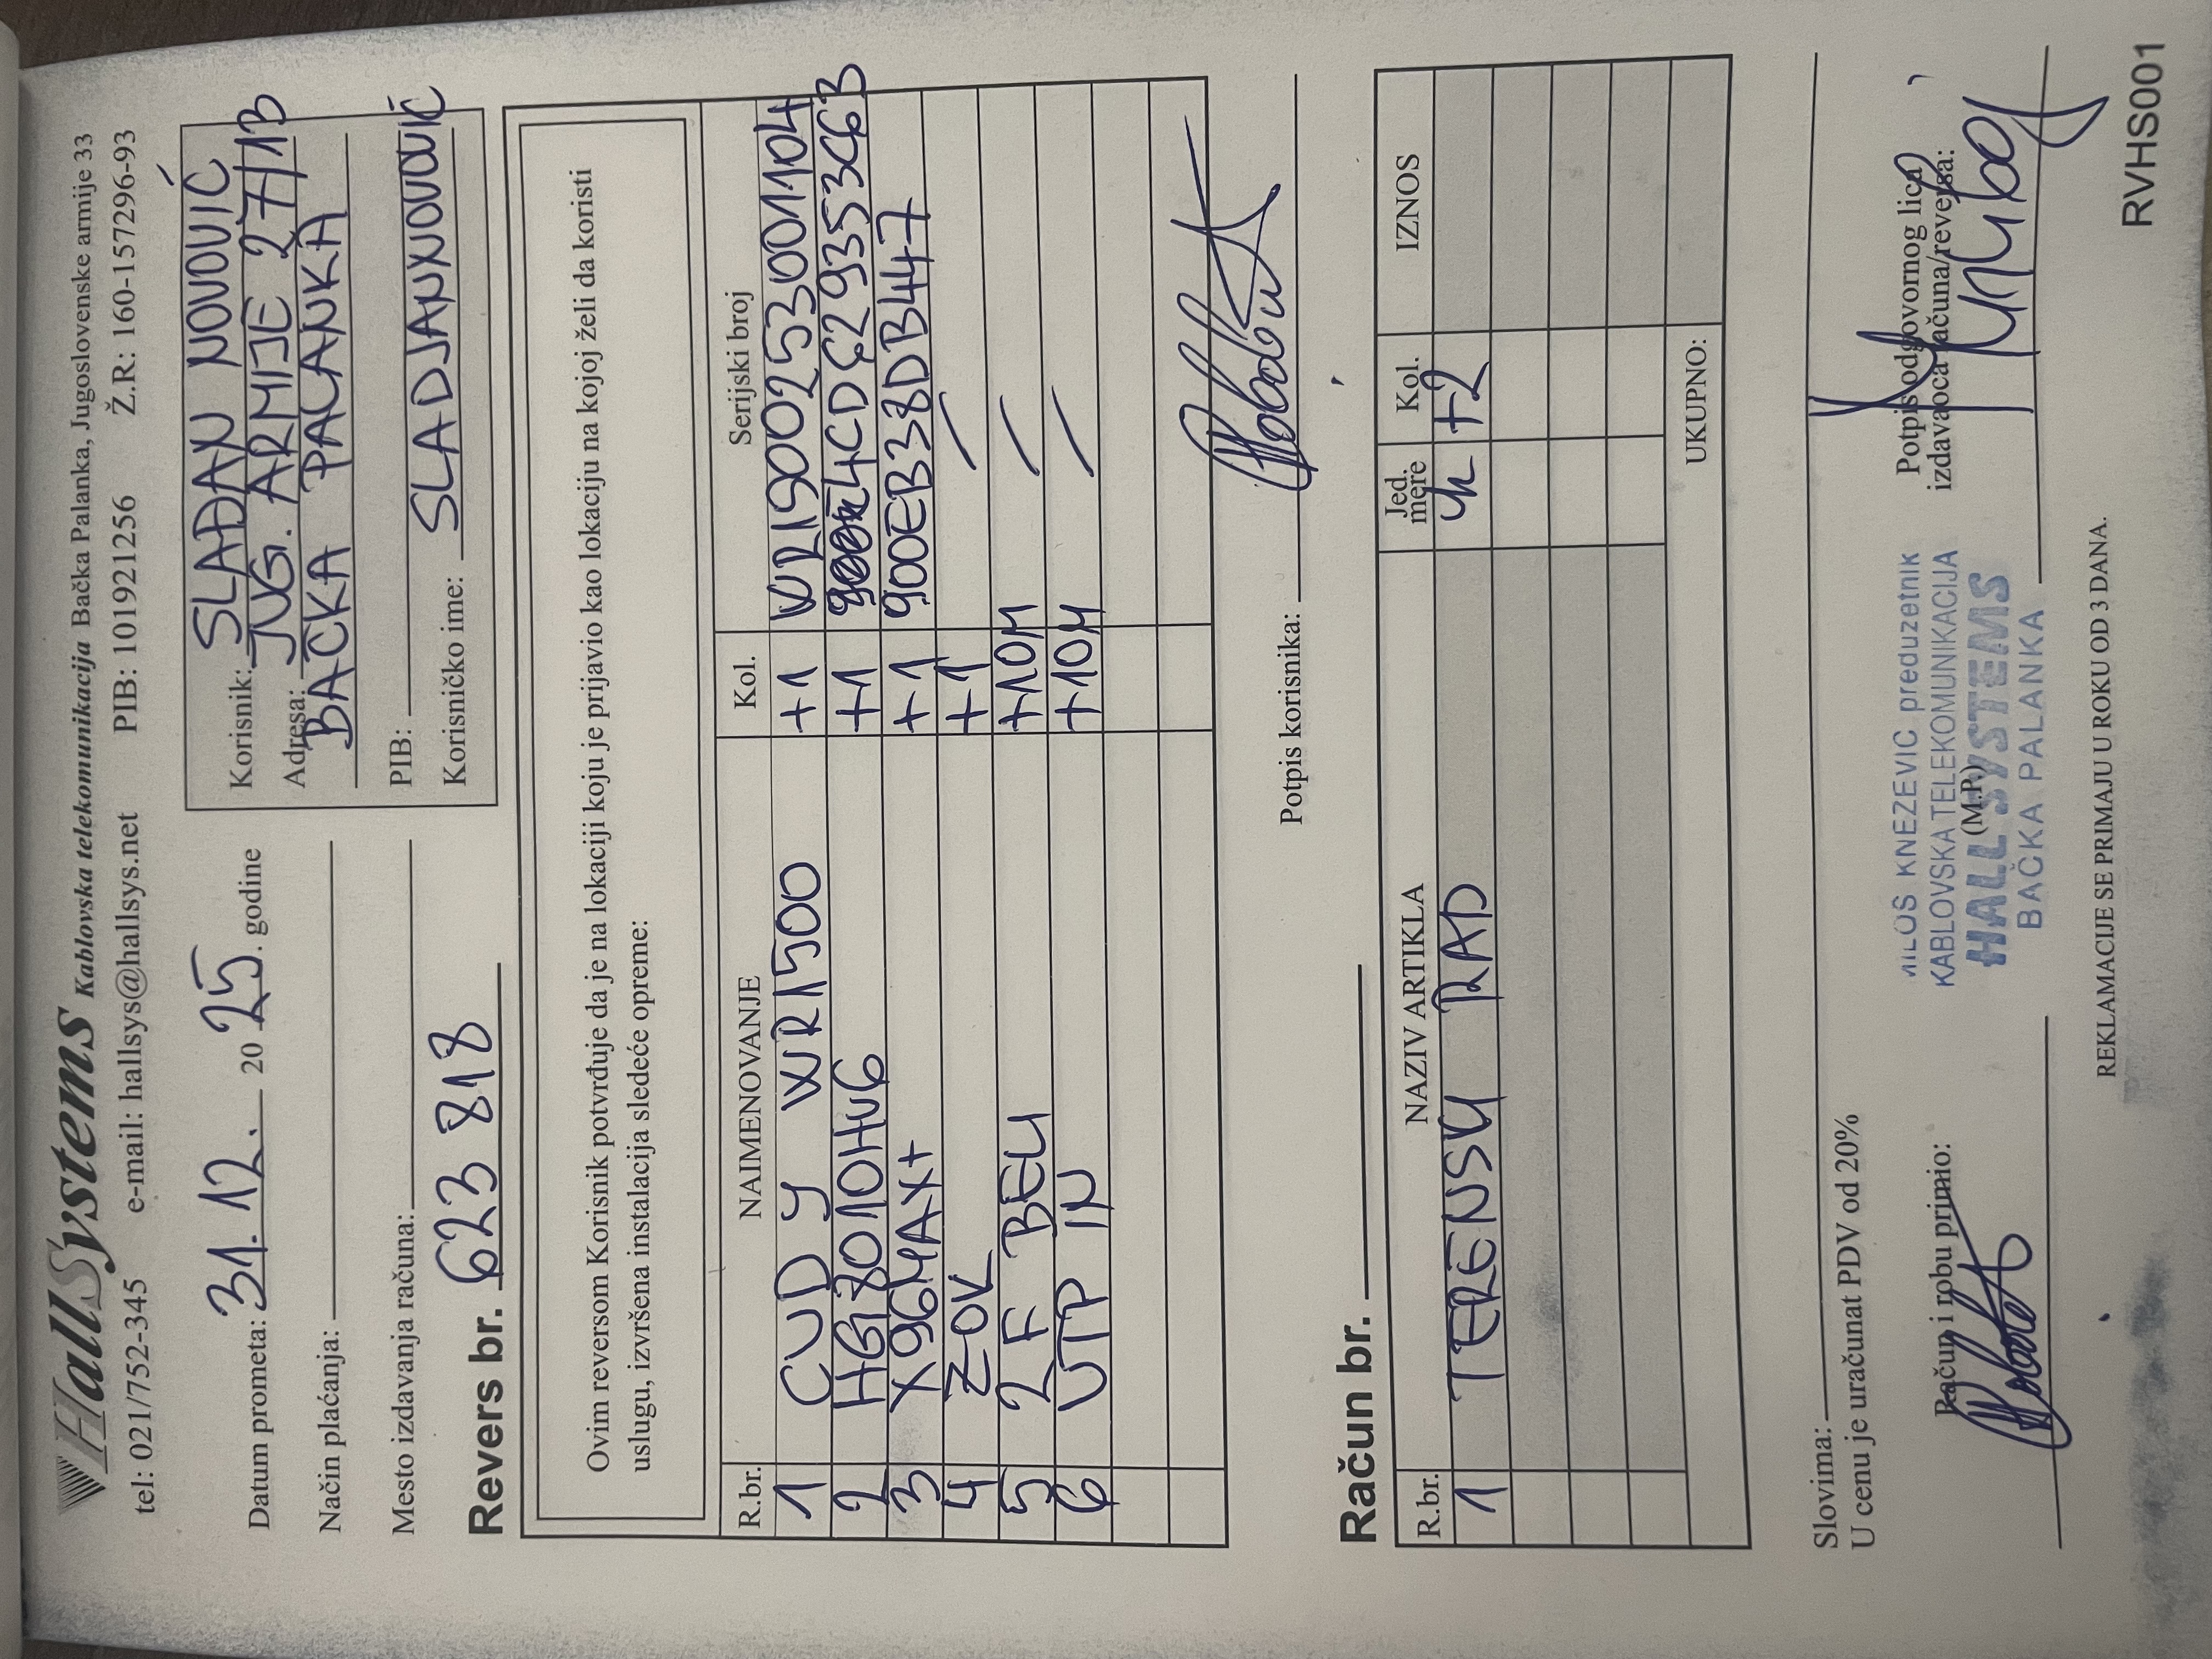 HallSystems Kablovska telekomunikacija Bačka Palanka, Jugoslovenske armije 33
tel: 021/752-345 e-mail: hallsys@hallsys.net PIB: 101921256 Ž.R: 160-157296-93
Datum prometa: 31.12. 2025. godine
Način plaćanja:
Mesto izdavanja računa:
Revers br. 623 818
Korisnik: SLAĐAN NOVOVIĆ
Adresa: JUG. ARMIJE 27/13
BAČKA PALANKA
PIB:
Korisničko ime: SLADJANNOVOVIĆ
Ovim reversom Korisnik potvrđuje da je na lokaciji koju je prijavio kao lokaciju na kojoj želi da koristi
uslugu, izvršena instalacija sledeće opreme:
R.br. NAIMENOVANJE Kol. Serijski broj
1 CUD Y WR1500 +1 WR1500253001104
2 HG8010HV6 +1 4CD629353C63
3 X96M4AX+ +1 900EB38DB447
4 ZOK +1 /
5 2F BELI +10M /
6 UTP IN +10M /
Potpis korisnika:
Račun br.
R.br. NAZIV ARTIKLA Jed. mere Kol. IZNOS
1 TERENSKI RAD h +2
UKUPNO:
Slovima:
U cenu je uračunat PDV od 20%
Račun i robu primio:
MILOŠ KNEZEVIC preduzetnik
KABLOVSKA TELEKOMUNIKACIJA
(M.P.)
HALL SYSTEMS
BAČKA PALANKA
Potpis odgovornog lica
izdavaoca računa/reversa:
REKLAMACIJE SE PRIMAJU U ROKU OD 3 DANA.
RVHS001